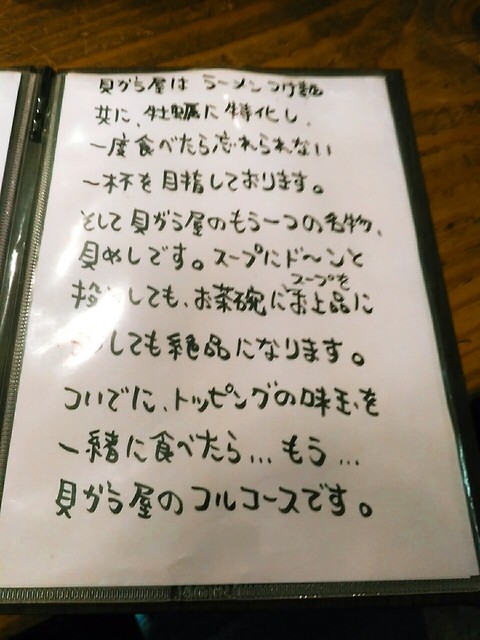 貝がら屋は ラーメンつけ麺
共に、牡蠣に特化し、
一度食べたら忘れられない
一杯を目指しております。
そして貝がら屋のもう一つの名物、
貝めしです。スープにド〜ンと
しても、お茶碗にスープをお上品に
しても絶品になります。
ついでに、トッピングの味玉を
一緒に食べたら...もう...
貝がら屋のフルコースです。